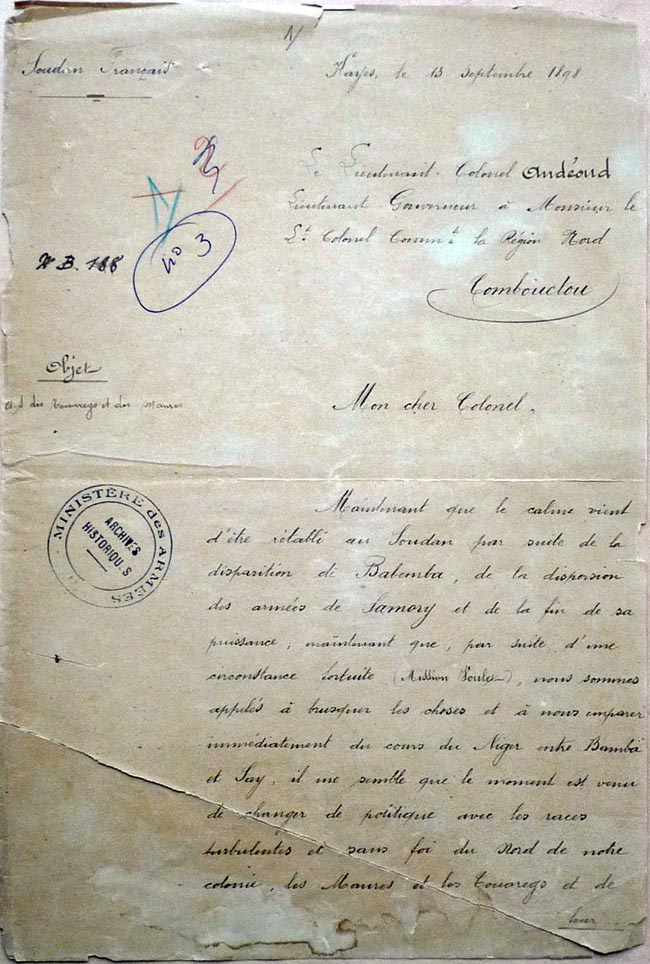 Soudan Français
Kayes, le 13 Septembre 1898
Le Lieutenant-Colonel Audéoud
Lieutenant Gouverneur à Monsieur le
Lt Colonel Commt la Région Nord
Tombouctou
N° 3
B. 188
Objet
a.s des Touaregs et des Maures
Mon cher Colonel,
MINISTÈRE des ARMÉES
ARCHIVES
HISTORIQU S
Maintenant que le calme vient
d'être rétabli au Soudan par suite de la
disparition de Babemba, de la dispersion
des armées de Samory et de la fin de sa
puissance, maintenant que, par suite d'une
circonstance fortuite (Mission Voulet), nous sommes
appelés à brusquer les choses et à nous emparer
immédiatement du cours du Niger entre Bamba
et Say, il me semble que le moment est venu
de changer de politique avec les races
turbulentes et sans foi du Nord de notre
colonie, les Maures et les Touaregs et de
leur